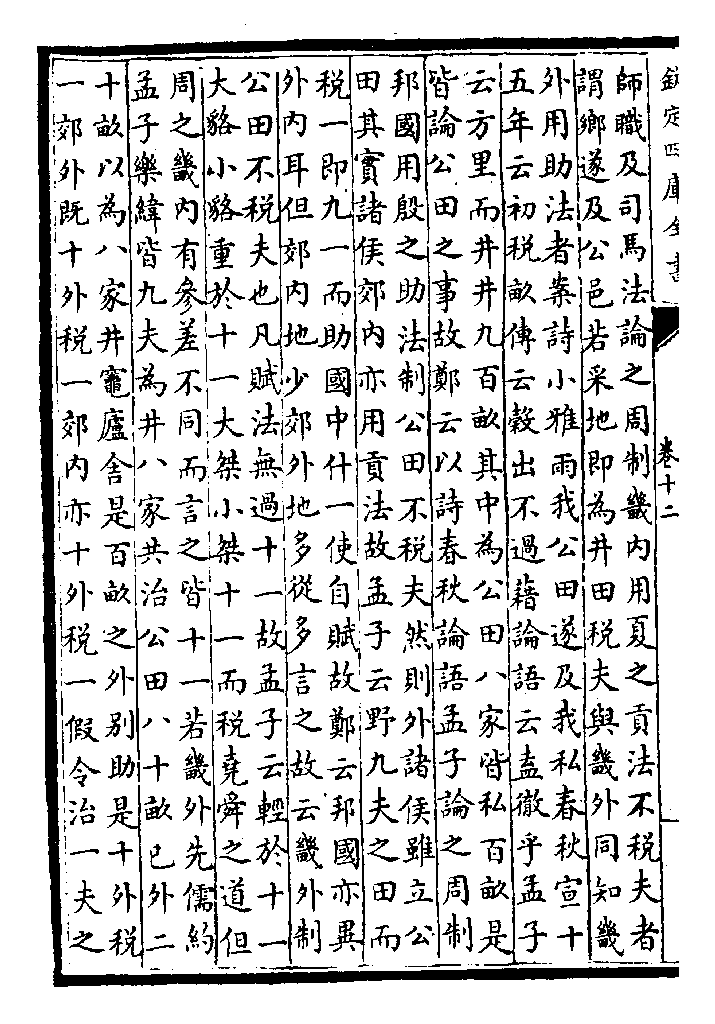 欽定四庫全書
卷十二
師職及司馬法論之周制畿内用夏之貢法不税夫者
謂鄉遂及公邑若采地即為井田税夫與畿外同知畿
外用助法者案詩小雅雨我公田遂及我私春秋宣十
五年云初税畝傳云榖出不過藉論語云盍徹乎孟子
云方里而井井九百畝其中為公田八家皆私百畝是
皆論公田之事故鄭云以詩春秋論語孟子論之周制
邦國用殷之助法制公田不税夫然則外諸侯雖立公
田其實諸侯郊内亦用貢法故孟子云野九夫之田而
税一即九一而助國中什一使自賦故鄭云邦國亦異
外内耳但郊内地少郊外地多從多言之故云畿外制
公田不税夫也凡賦法無過十一故孟子云輕於十一
大貉小貉重於十一大桀小桀十一而税堯舜之道但
周之畿内有參差不同而言之皆十一若畿外先儒約
孟子樂緯皆九夫為井八家共治公田八十畝已外二
十畝以為八家井竈廬舍是百畝之外别助是十外税
一郊外既十外税一郊内亦十外税一假令治一夫之